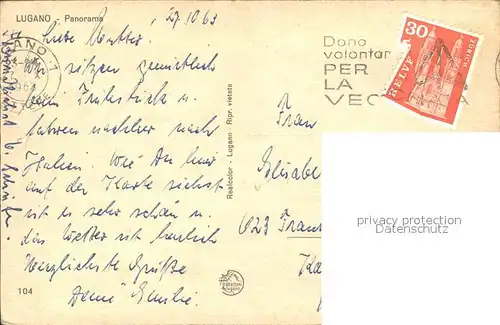 LUGANO - Panorama
27.10.63
Liebe Mutter.
Wir sitzen gemütlich
beim Frühstück u.
fahren nachher nach
Italien. Wie Du hier
auf der Karte siehst
ist es sehr schön u.
das Wetter ist herrlich
Herzlichste Grüße
Deine Emilie.
104
Realcolor - Lugano - Ripr. vietata
Dona
volontar
PER
LA
VEC
HELVETIA
30
ZÜRICH
Frau
Elisabe
623 Frank
privacy protection
Datenschutz